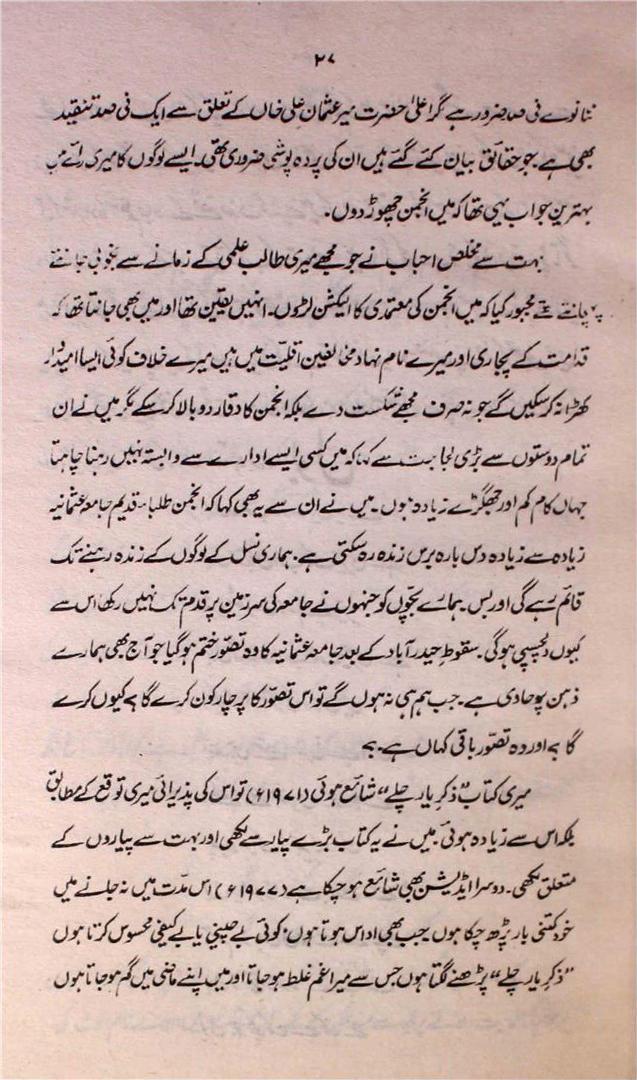 ۲۷
ننانوے فی صد ضرور ہے مگر اعلیٰ حضرت میر عثمان علی خاں کے تعلق سے ایک فی صد تنقید
بھی ہے۔ جو حقائق بیان کئے گئے ہیں ان کی پردہ پوشی ضروری تھی۔ ایسے لوگوں کا میری رائے میں
بہترین جواب یہی تھا کہ میں انجمن چھوڑ دوں۔
بہت سے مخلص احباب نے جو مجھے میری طالب علمی کے زمانے سے بخوبی جانتے
پہچانتے تھے مجبور کیا کہ میں انجمن کی معتمدی کا الیکشن لڑوں۔ انہیں یقین تھا اور میں بھی جانتا تھا کہ
قدامت کے پجاری اور میرے نام نہاد مخالفین اقلیت میں ہیں میرے خلاف کوئی ایسا امیدوار
کھڑا نہ کر سکیں گے جو نہ صرف مجھے شکست دے بلکہ انجمن کا وقار دوبالا کر سکے مگر میں نے ان
تمام دوستوں سے بڑی لجاجت سے کہا کہ میں کسی ایسے ادارے سے وابستہ نہیں رہنا چاہتا
جہاں کام کم اور جھگڑے زیادہ ہوں۔ میں نے ان سے یہ بھی کہا کہ انجمن طلباء قدیم جامعہ عثمانیہ
زیادہ سے زیادہ دس بارہ برس زندہ رہ سکتی ہے۔ ہماری نسل کے لوگوں کے زندہ رہنے تک
قائم رہے گی اور بس۔ ہمارے بچّوں کو جنہوں نے جامعہ کی سرزمین پر قدم تک نہیں رکھا اس سے
کیوں دلچسپی ہوگی۔ سقوطِ حیدرآباد کے بعد جامعہ عثمانیہ کا وہ تصوّر ختم ہو گیا جو آج بھی ہمارے
ذہن پر حاوی ہے۔ جب ہم ہی نہ ہوں گے تو اس تصوّر کا پرچار کون کرے گا؟ کیوں کرے
گا؟ اور وہ تصوّر باقی کہاں ہے۔؟
میری کتاب "ذکرِ یار چلے" شائع ہوئی (۱۹۷۱ء) تو اس کی پذیرائی میری توقع کے مطابق
بلکہ اس سے زیادہ ہوئی۔ میں نے یہ کتاب بڑے پیار سے لکھی اور بہت سے پیاروں کے
متعلق لکھی۔ دوسرا ایڈیشن بھی شائع ہو چکا ہے (۱۹۷۷ء) اس مدّت میں نہ جانے میں
خود کتنی بار پڑھ چکا ہوں جب بھی اداس ہوتا ہوں، کوئی بے چینی یا بے کیفی محسوس کرتا ہوں
"ذکرِ یار چلے" پڑھنے لگتا ہوں جس سے میرا غم غلط ہو جاتا اور میں اپنے ماضی میں گم ہو جاتا ہوں